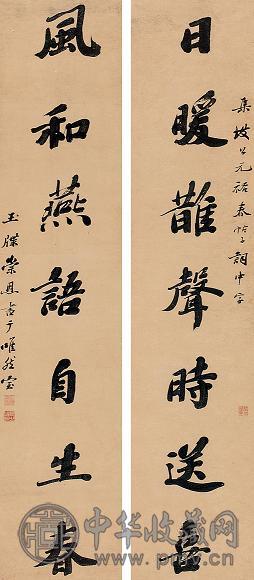 日暖䧿聲時送喜
集坡公元祐春帖子詞中字
風和燕語自生春
玉牒崇恩書于唯然室
中华收藏网